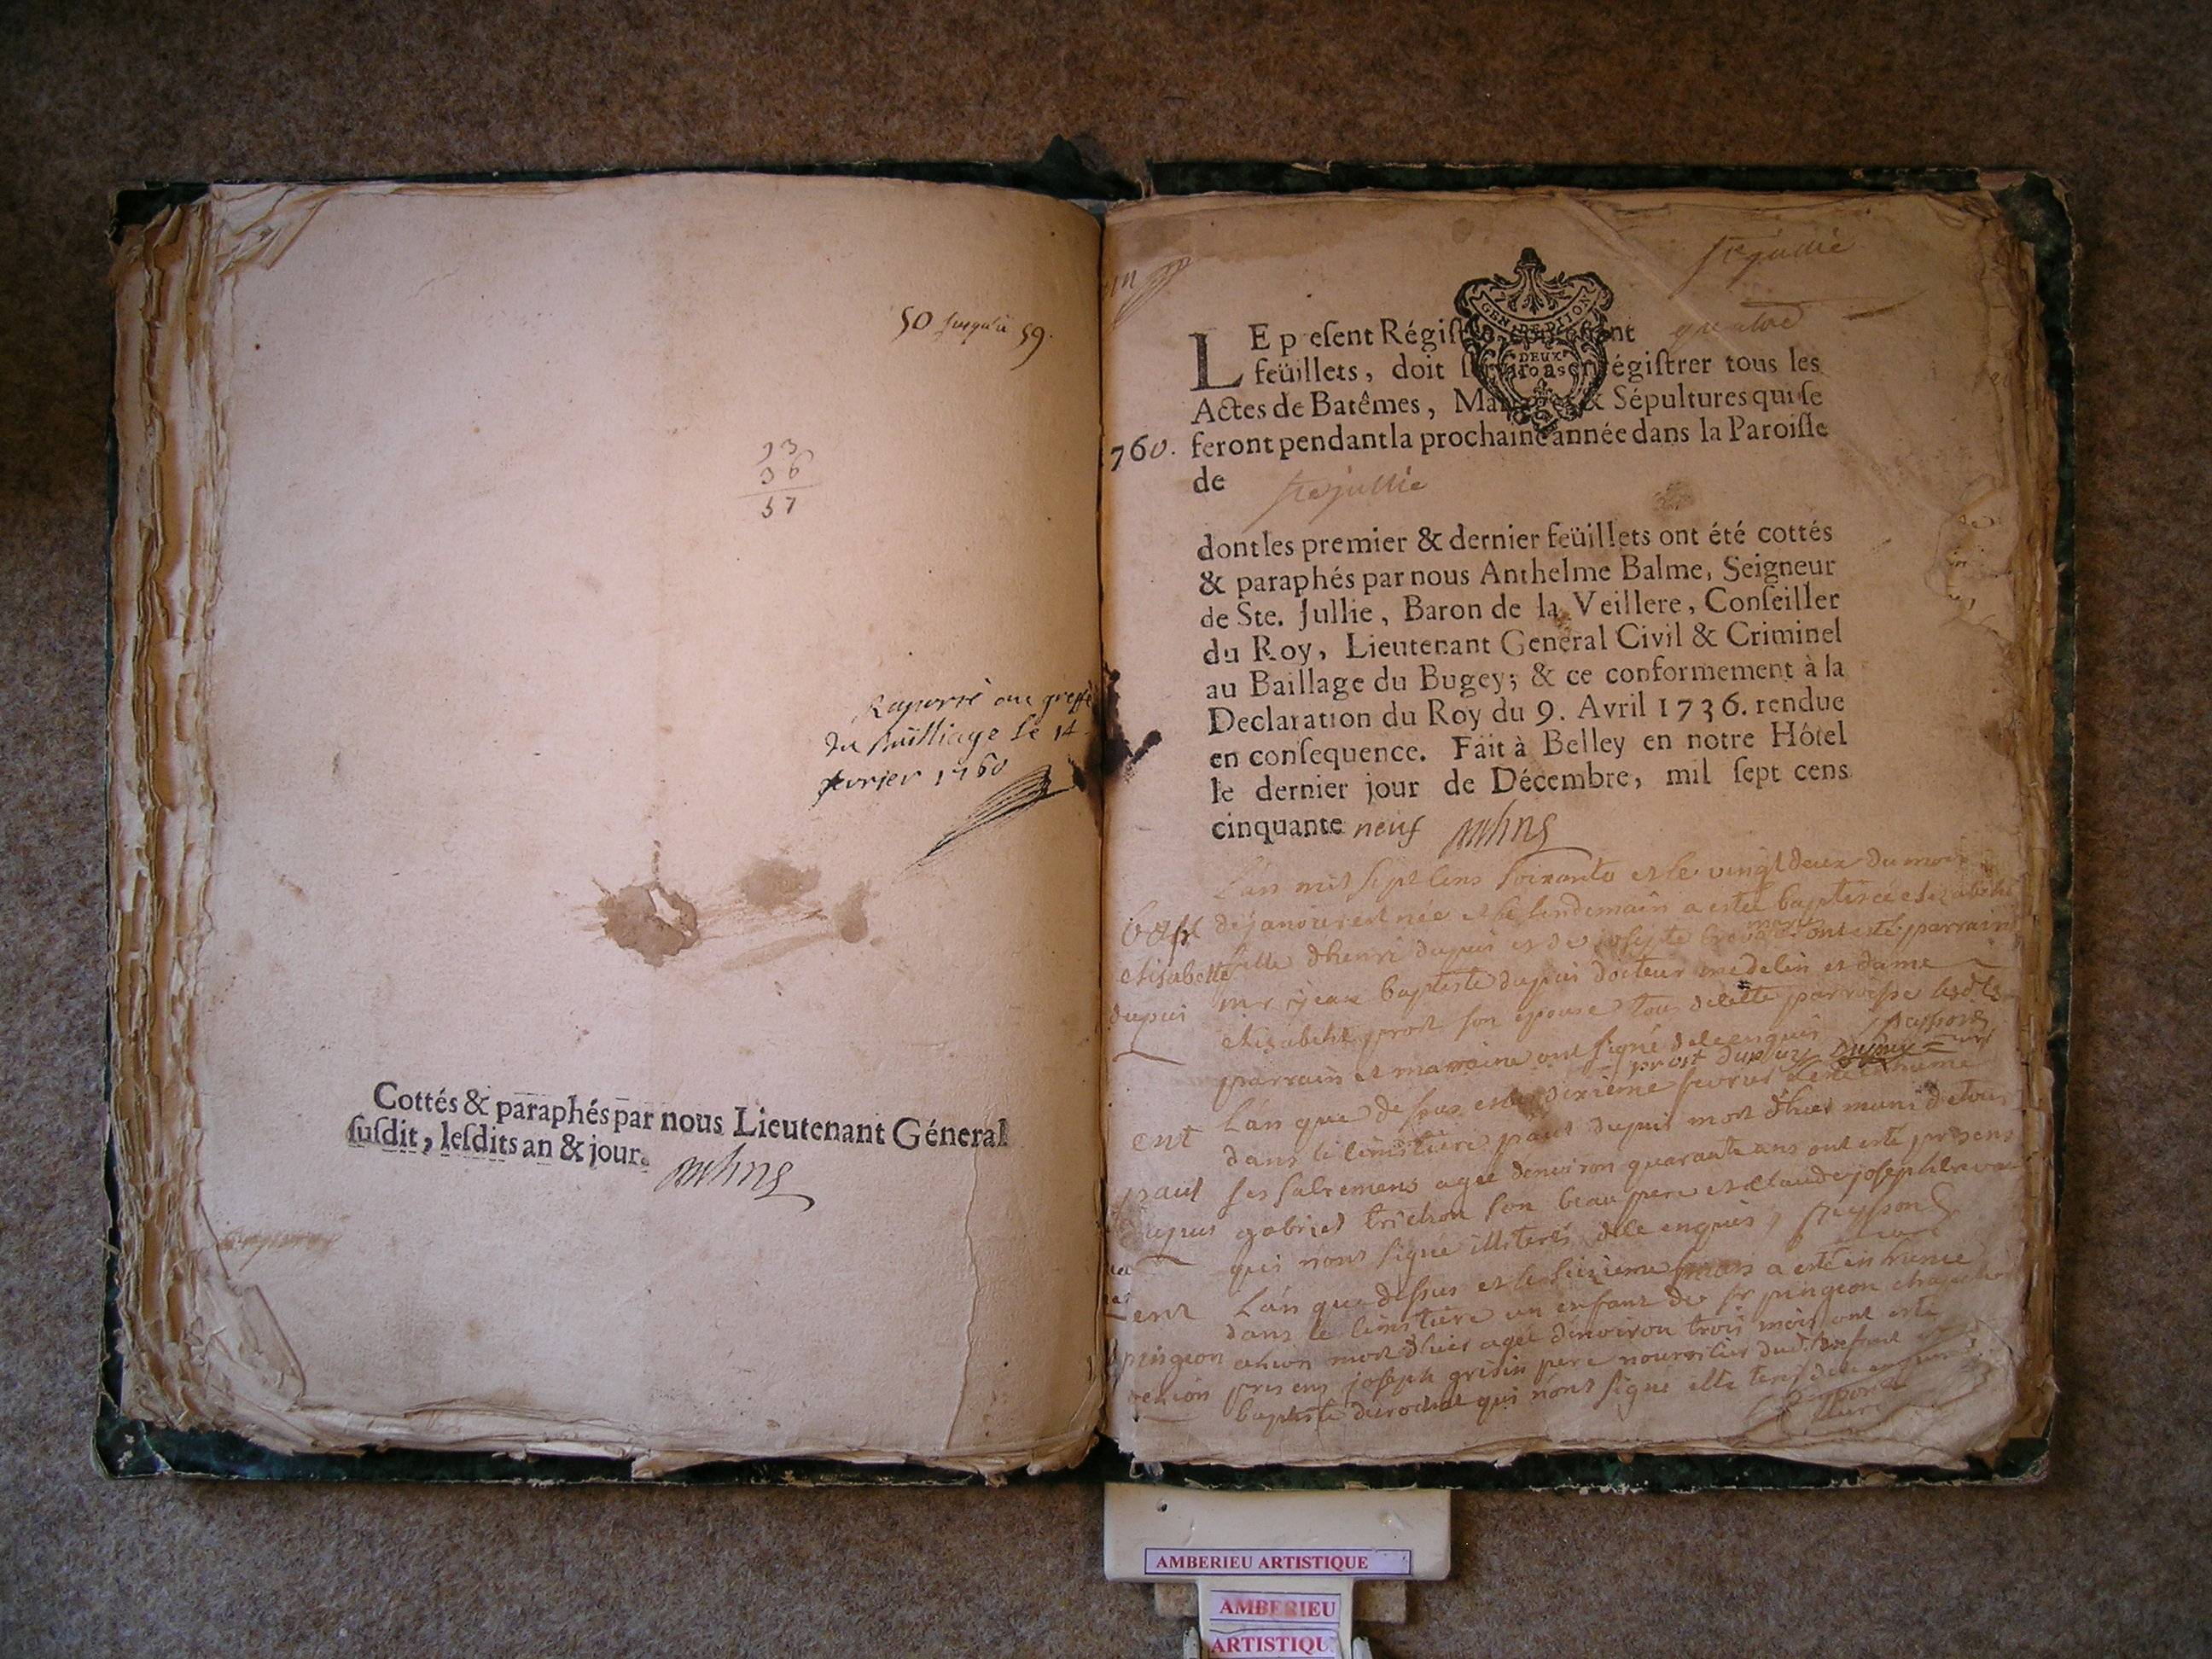 50 jusqu'a 59.
36
57
Raporté au greffe
du bailliage le 14
fevrier 1760
Cottés & paraphés par nous Lieutenant Géneral
ſuſdit, leſdits an & jour.
ste jullie
GEN DIJON
DEUX
LE preſent Régiſtre, contenant quatre
feüillets, doit ſervir à enrégiſtrer tous les
Actes de Batêmes, Mariages & Sépultures qui ſe
760. feront pendant la prochaine année dans la Paroiſſe
de ste jullie
dont les premier & dernier feüillets ont été cottés
& paraphés par nous Anthelme Balme, Seigneur
de Ste. Jullie, Baron de la Veillere, Conſeiller
du Roy, Lieutenant General Civil & Criminel
au Baillage du Bugey; & ce conformement à la
Declaration du Roy du 9. Avril 1736. rendue
en conſequence. Fait à Belley en notre Hôtel
le dernier jour de Décembre, mil ſept cens
cinquante neuf
L'an mil sept cens soixante et le vingt deux du mois
bapt de janvier est née et le lendemain a esté baptisée elizabethe
elisabethe fille d'henri dupuis et de ont esté parrain
dupuis mr jean baptiste dupuis docteur medecin et dame
elizabethe prost son epouse tous de cette parroisse lesdts
parrain et marraine ont signé de ce enquis
prost dupuis
L'an que dessus et le dixieme fevrier a esté
ent dans le cimetiere paul dupuis mort d'hier muni de tous
paul ses sacremens agé d'environ quarante ans ont esté presens
dupuis gabriel trichon son beau pere et claude joseph
qui n'ont signé illiterés de ce enquis
L'an que dessus et le mars a esté enhumé
ent dans le cimetiere un enfant de sr pingeon
pingeon mort d'hier agé d'environ trois mois ont esté
presens joseph grisin pere nourricier dudt enfant
baptiste durochat qui n'ont signé de ce enquis
AMBERIEU ARTISTIQUE
AMBERIEU
ARTISTIQU